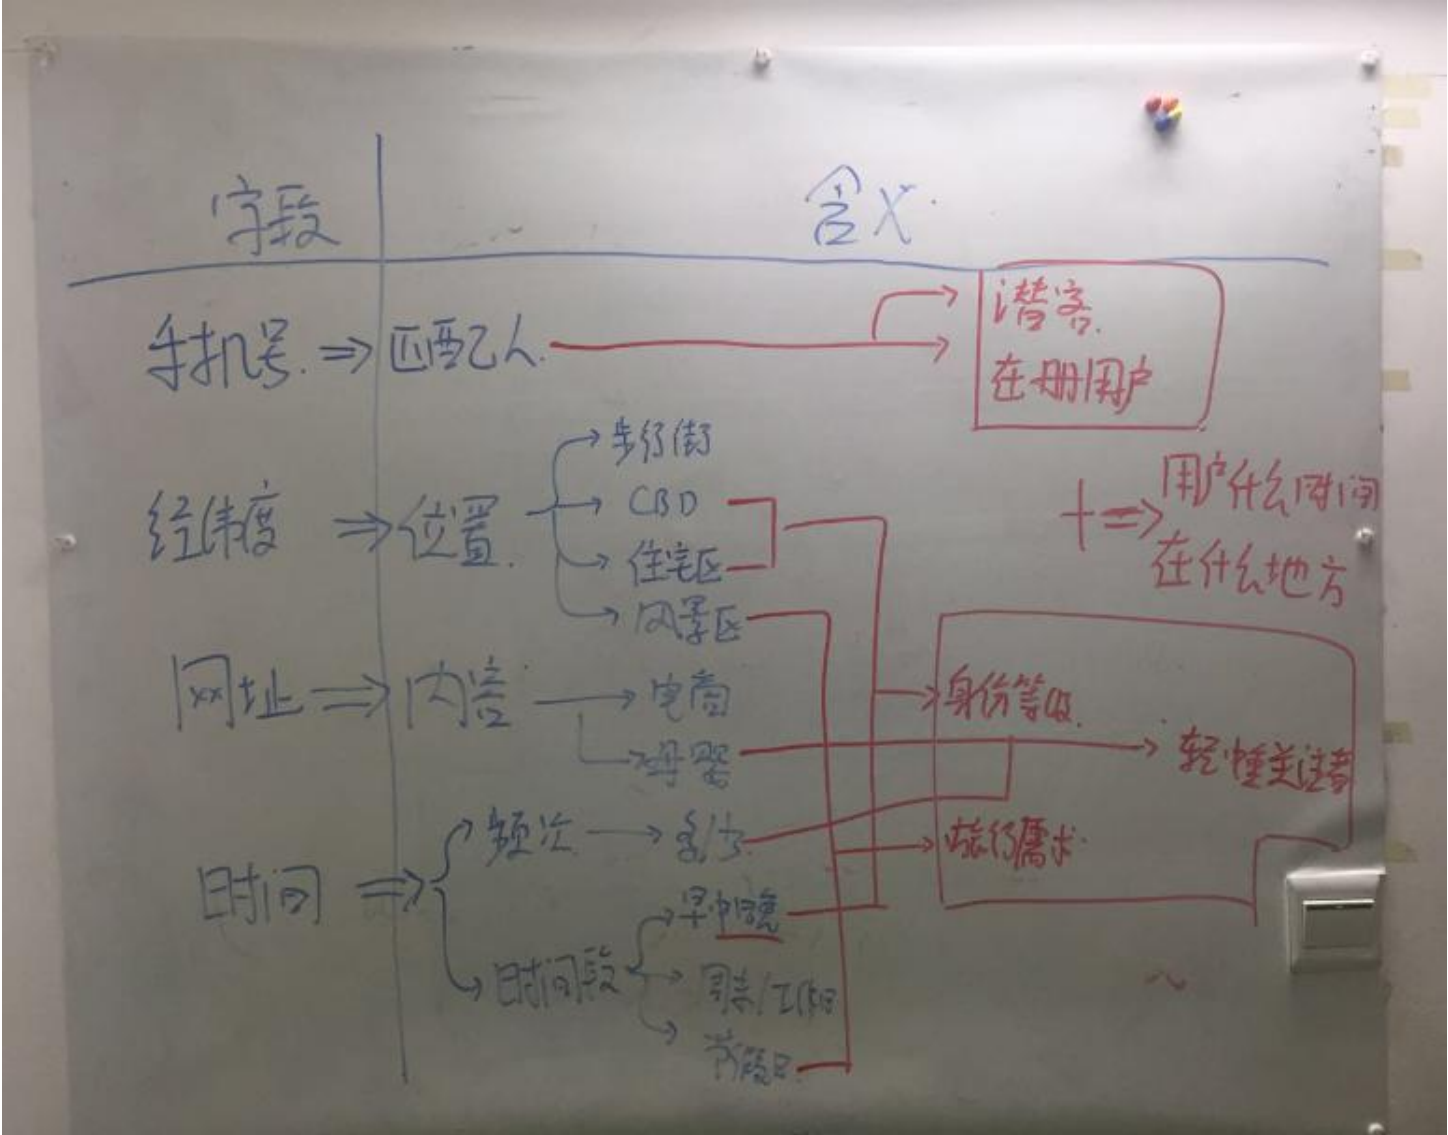 字段 含义
手机号 ⇒ 匹配人 → 潜客
在册用户
经纬度 ⇒ 位置
步行街
CBD
住宅区
风景区
+⇒ 用户什么时间
在什么地方
网址 ⇒ 内容
电商
母婴
身份等级
轻中重关注者
旅行需求
时间 ⇒
频次 → 多/少
时间段
早中晚
周末/工作日
节假日